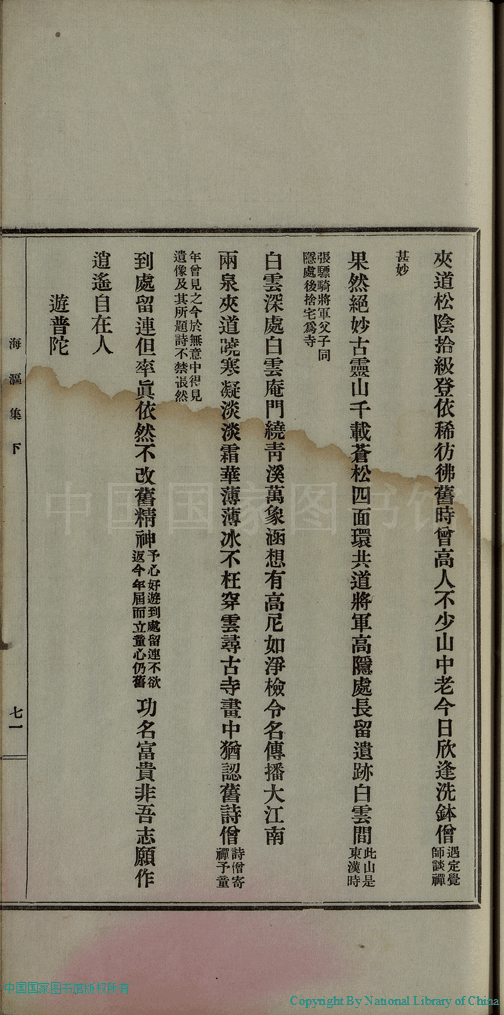 夾道松陰拾級登依稀彷彿舊時曾高人不少山中老今日欣逢洗鉢僧遇定覺師談禪
甚妙
果然絕妙古靈山千載蒼松四面環共道將軍高隱處長留遺跡白雲間此山是東漢時
張驃騎將軍父子同隱處後捨宅爲寺
白雲深處白雲庵門繞靑溪萬象涵想有高尼如淨檢令名傳播大江南
兩泉夾道曉寒凝淡淡霜華薄薄冰不枉穿雲尋古寺畫中猶認舊詩僧詩僧寄禪予童
年曾見之今於無意中得見遺像及其所題詩不禁悵然
到處留連但率眞依然不改舊精神予心好遊到處留連不欲返今年屆而立童心仍舊功名富貴非吾志願作
逍遙自在人
遊普陀
海漚集 下
七一
中国国家图书馆
中国国家图书馆版权所有
Copyright By National Library of China